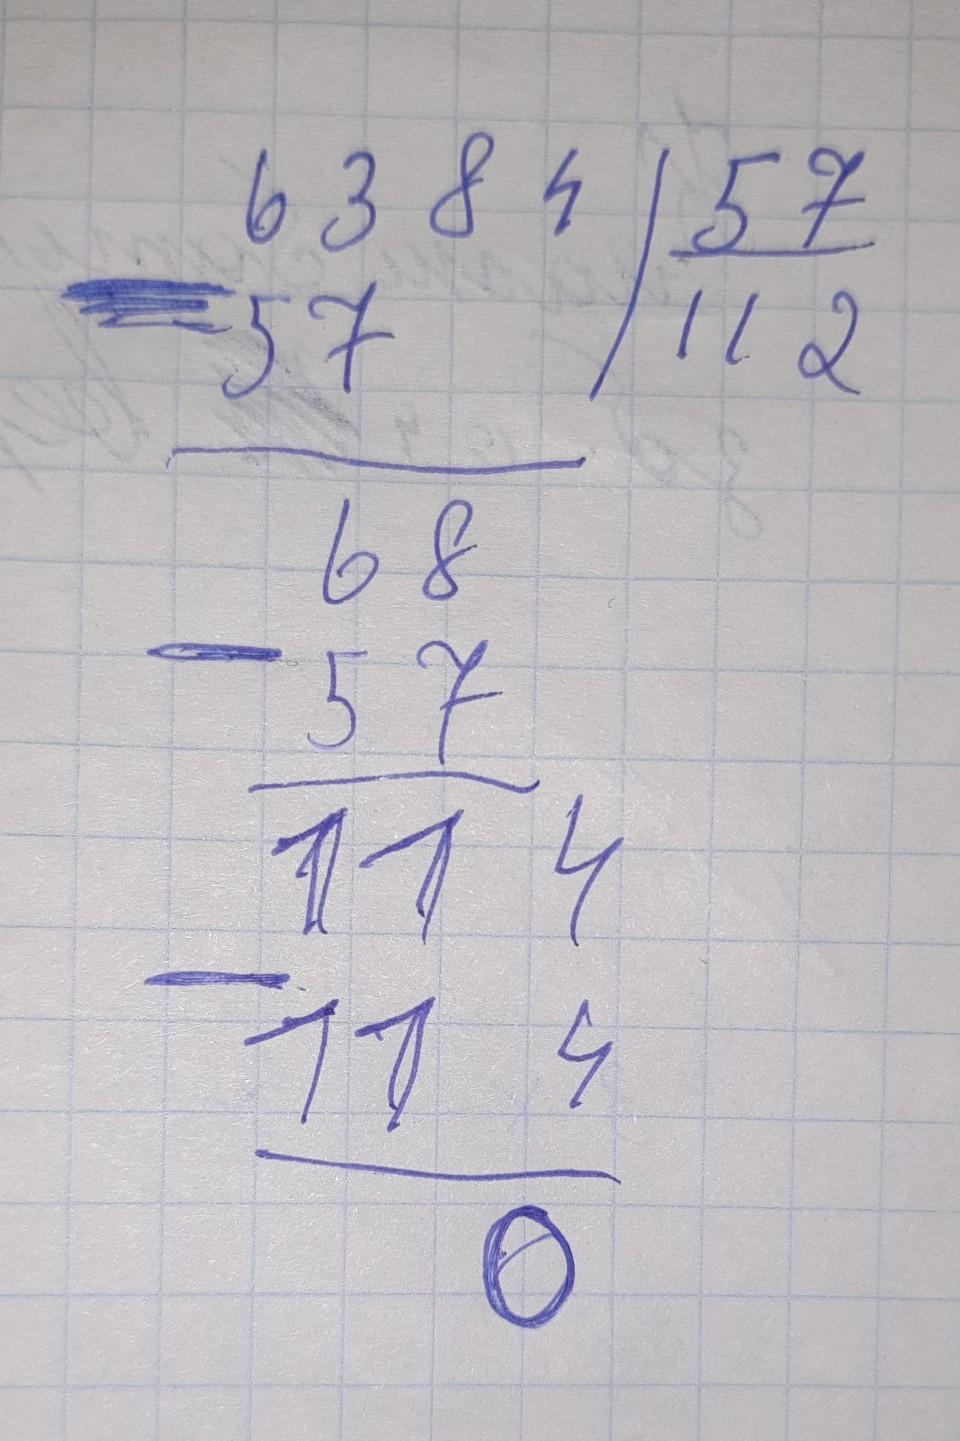 6384 | 57
- 57 | 112
68
- 57
114
- 114
0